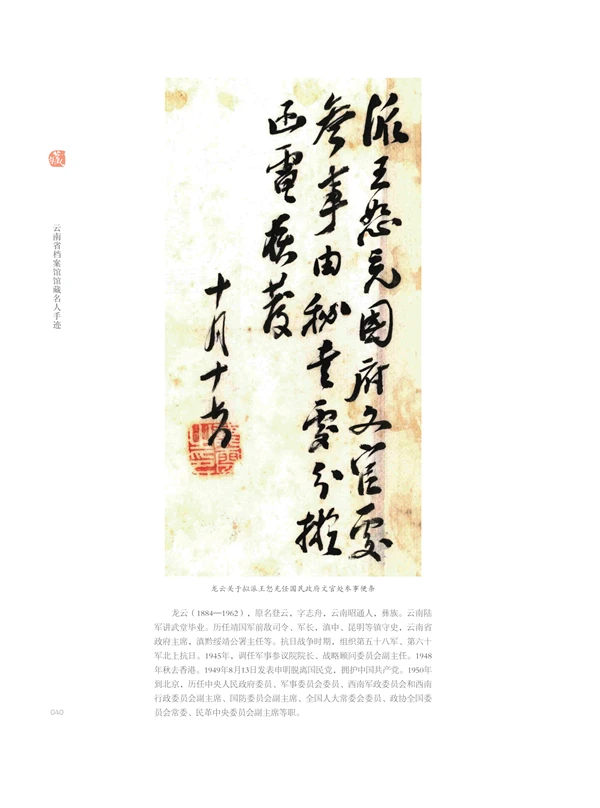 派王恕充國府文官處
參事由秘書處分擬
函電核發
十月十
藏
云南省档案馆馆藏名人手迹
龙云关于拟派王恕充任国民政府文官处参事便条
龙云（1884—1962），原名登云，字志舟，云南昭通人，彝族。云南陆
军讲武堂毕业。历任靖国军前敌司令、军长，滇中、昆明等镇守史，云南省
政府主席，滇黔绥靖公署主任等。抗日战争时期，组织第五十八军、第六十
军北上抗日。1945年，调任军事参议院院长、战略顾问委员会副主任。1948
年秋去香港。1949年8月13日发表申明脱离国民党，拥护中国共产党。1950年
到北京，历任中央人民政府委员、军事委员会委员、西南军政委员会和西南
行政委员会副主席、国防委员会副主席、全国人大常委会委员、政协全国委
员会常委、民革中央委员会副主席等职。
040